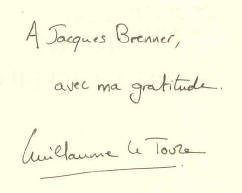 A Jacques Brenner,
avec ma gratitude.
Guillaume Le Touze